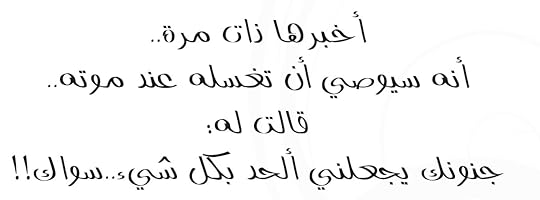 أخبرها ذات مرة..
أنه سيوصي أن تغسله عند موته..
قالت له:
جنونك يجعلني ألحد بكل شيء..سواك!!